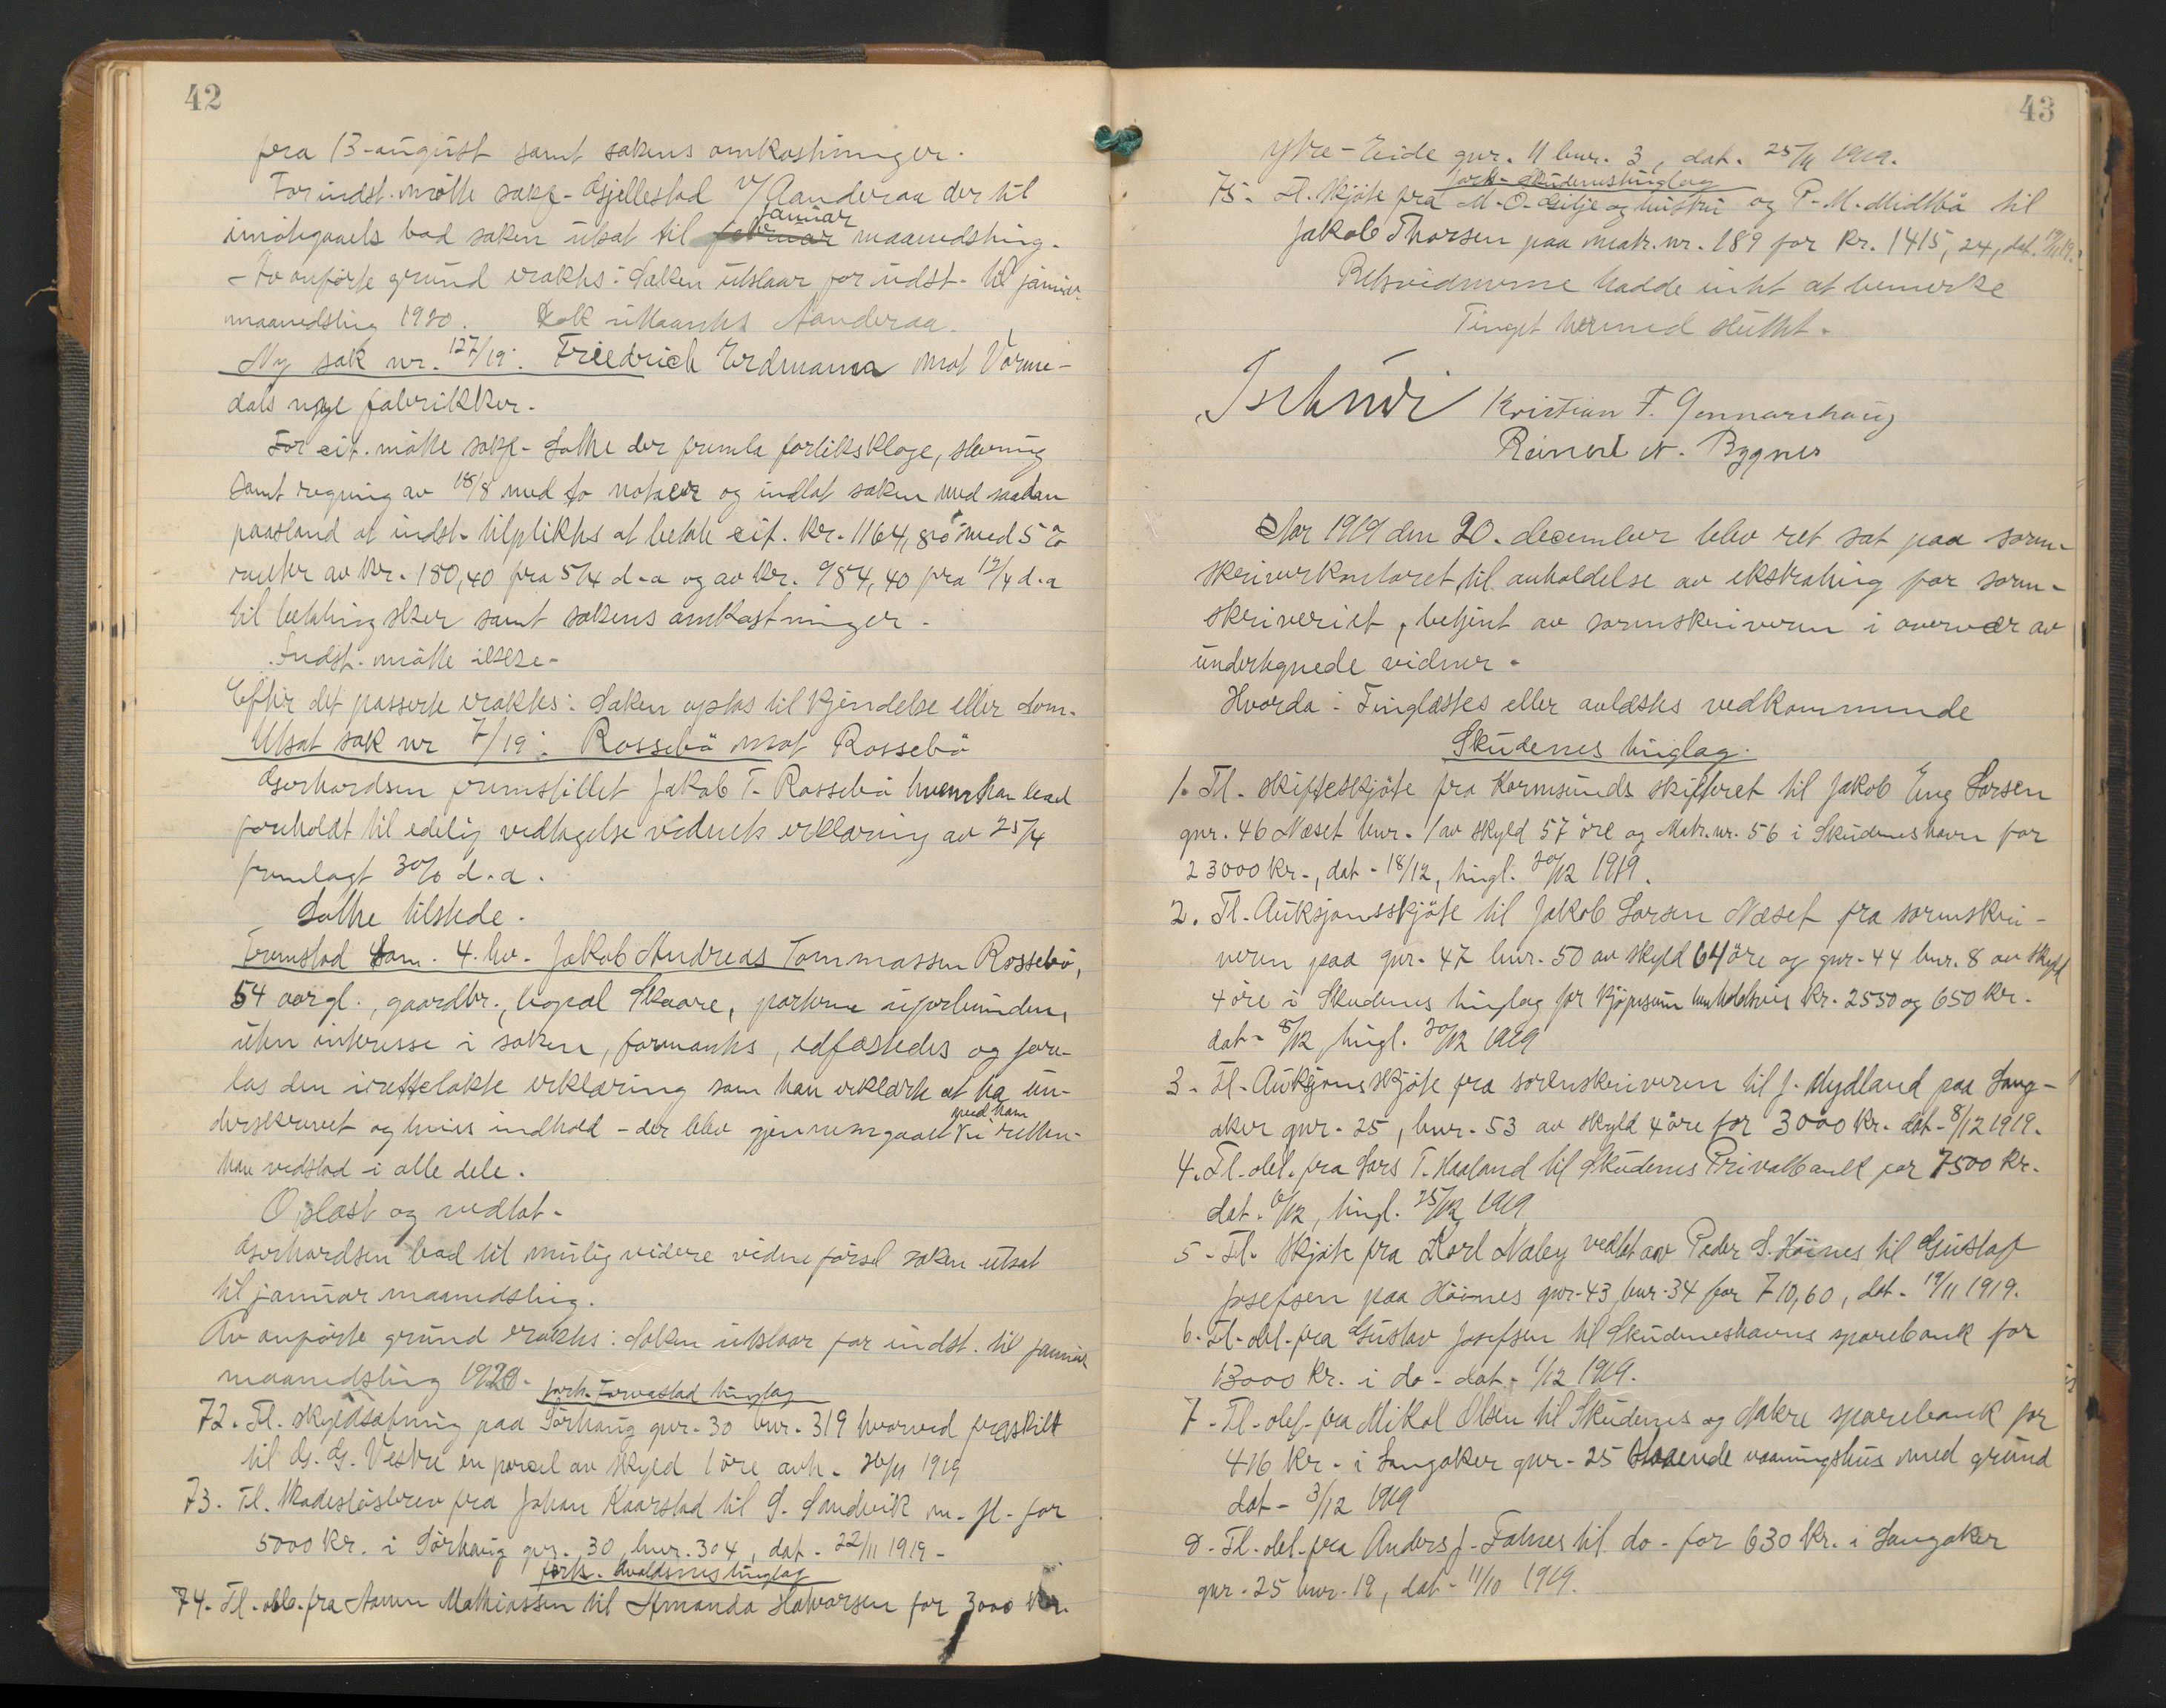 42
fra 13-august samt sakens omkostninger.
For indst. mötte sakf. Gjellestad v/ Aanderaa der til
januar
imötegaaels bad saken utsat til februar maanedsting.
Av anförte grund vraktes: Saken utstaar for indst. til januar
maanedsting 1920. Aanderaa.
Ny sak nr. 127/19: Friedrich Erdmann mot Vorme-
dals uld fabrikker.
For cit. mötte sakf. Lothe der fremla forliksklage, stevning
samt regning av 18/8 med to notaer og indlot saken med saadan
paastand at indst. tilpliktes at betale cit. kr. 1164,80 med 5 %
renter av kr. 180,40 fra 5/4 d.a og av kr. 984,40 fra 12/4 d.a
til betaling sker samt sakens omkostninger.
Indst. mötte ikke.
Efter det passerte vraktes: Saken optas til kjendelse eller dom.
Utsat sak nr 7/19: Rossebö mot Rossebö
Gerhardsen fremstillet Jakob T. Rossebö hvem han bad
foreholdt til edelig vedtagelse vidnets erklæring av 25/4
fremlagt 30/6 d.a.
Lothe tilstede.
Fremstod som 4. hv. Jakob Andreas Tommassen Rossebö,
54 aar gl., gaardbr., bopæl Skaare, parterne uforbunden,
uten interesse i saken, formantes, edfæstedes og fore-
las den irettelakte erklæring som han erklærte at ha un-
med ham
derskrevet og hvis indhold - der blev gjennemgaaet i retten -
han vedstod i alle dele.
Oplæst og vedtat.
Gerhardsen bad til mulig videre vidneförsel saken utsat
til januar maanedsting.
Av anförte grund vraktes: Saken utstaar for indst. til januar
maanedsting 1920.
fork. Torvastad tinglag
72. Tl. skyldsætning paa Sörhaug gnr. 30 bnr. 319 hvorved fraskilt
til G. G. Vestre en parcel av skyld 1 öre avh. 26/11 1919
73. Tl. skadeslösbrev fra Johan Kaarstad til S. Sandvik m. fl. for
5000 kr. i Sörhaug gnr. 30 bnr. 304, dat. 22/11 1919 -
fork. Avaldsnes tinglag
74. Tl. obl. fra Mathiassen til Amanda Halvorsen for 3000 kr.
43
Ytre-Eide gnr. 11 bnr. 3, dat. 25/11 1919.
fork. Skudenes tinglag
75. Tl. skjöte fra M. O. Gilje og hustru og P. M. Midtbö til
Jakob Thorsen paa matr. nr. 189 for kr. 1415,24, dat. 19.
Retsvidnerne hadde intet at bemerke
Tinget hermed sluttet.
Kristian F. Gunnarshaug
Reinert N. Bygnes
Aar 1919 den 20. december blev ret sat paa soren-
skriverkontoret til avholdelse av ekstrating for soren-
skriveriet, betjent av sorenskriveren i overvær av
undertegnede vidner.
Hvorda: Tinglæstes eller avlæstes vedkommende
Skudenes tinglag.
1. Tl. skifteskjöte fra Karmsunds skifteret til Jakob Eng Larsen
gnr. 46 Næset bnr. 1 av skyld 57 öre og Matr. nr. 56 i Skudeneshavn for
23000 kr., dat. 18/12, tingl. 20/12 1919.
2. Tl. Auksjonsskjöte til Jakob Larsen Næset fra sorenskri-
veren paa gnr. 47 bnr. 50 av skyld 64 öre og gnr. 44 bnr. 8 av skyld
4 öre i Skudenes tinglag for kjöpesum henholdsvis kr. 2550 og 650 kr.
dat. 8/12, tingl. 20/12 1919
3. Tl. Auksjonsskjöte fra sorenskriveren til J. Mydland paa Sang-
aker gnr. 25, bnr. 53 av skyld 4 öre for 3000 kr. dat. 8/12 1919.
4. Tl. obl. fra Lars T. Haaland til Skudenes Privatbank for 7500 kr.
dat. 6/12, tingl. 1919
5. Tl. Skjöte fra Karl Naley vedtat av Peder S. Höines til Gustaf
Josefsen paa Höines gnr. 43 bnr. 34 for 710,60, dat. 19/11 1919.
6. Tl. obl. fra Gustav Josefsen til Skudeneshavns sparebank for
13000 kr. i do. dat. 1/12 1919.
7. Tl. obl. fra Mikal Olsen til Skudenes og Aakre sparebank for
416 kr. i Sangaker gnr. 25 staaende vaaningshus med grund
dat. 3/12 1919
8. Tl. obl. fra Anders J. Falnes til do. for 630 kr. i Sangaker
gnr. 25 bnr. 19, dat. 11/10 1919.